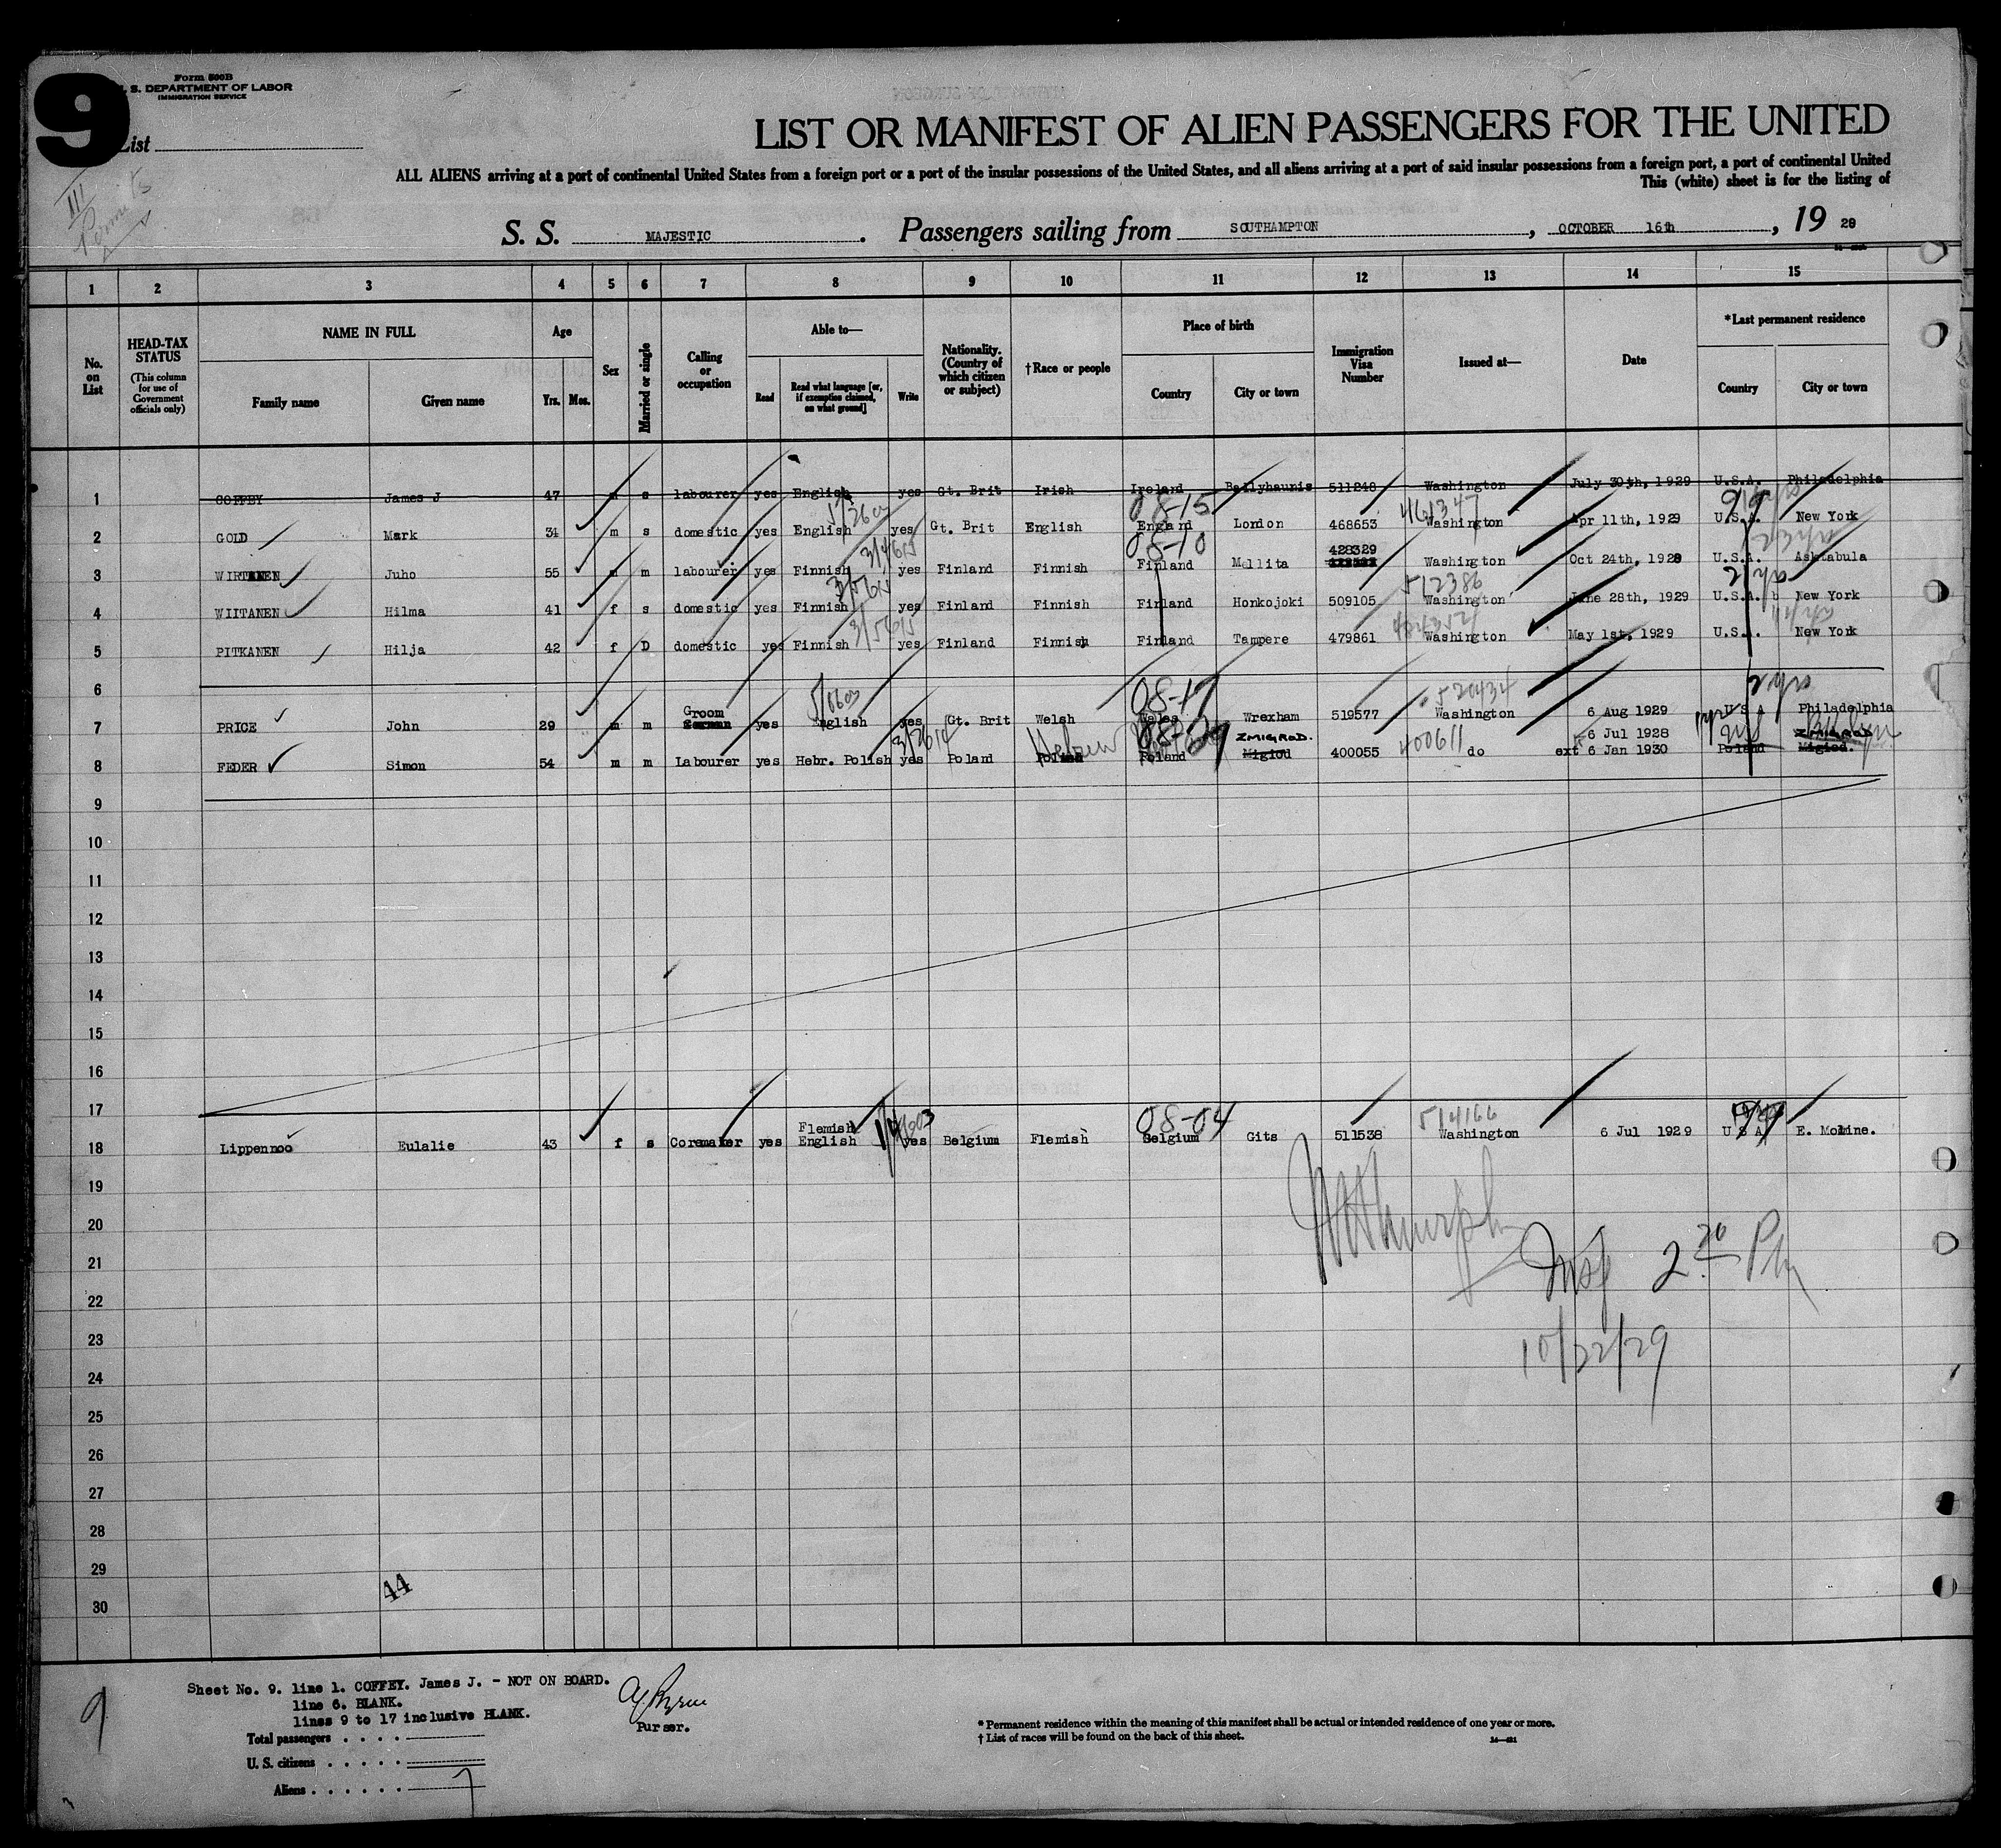 9
Form 500B
U. S. DEPARTMENT OF LABOR
IMMIGRATION SERVICE
List
III
LIST OR MANIFEST OF ALIEN PASSENGERS FOR THE UNITED
ALL ALIENS arriving at a port of continental United States from a foreign port or a port of the insular possessions of the United States, and all aliens arriving at a port of said insular possessions from a foreign port, a port of continental United
This (white) sheet is for the listing of
S. S. MAJESTIC. Passengers sailing from SOUTHAMPTON, OCTOBER 16th, 19 29
1 2 3 4 5 6 7 8 9 10 11 12 13 14 15
No. on List
HEAD-TAX STATUS
(This column for use of Government officials only)
NAME IN FULL
Family name Given name
Age
Yrs. Mos.
Sex
Married or single
Calling or occupation
Able to—
Read
Read what language [or, if exemption claimed, on what ground]
Write
Nationality. (Country of which citizen or subject)
†Race or people
Place of birth
Country City or town
Immigration Visa Number
Issued at—
Date
*Last permanent residence
Country City or town
1 COFFEY James J 47 m s labourer yes English yes Gt. Brit Irish Ireland Ballyhaunis 511248 Washington July 30th, 1929 U.S.A. Philadelphia
08-15 461347
2 GOLD Mark 34 m s domestic yes English yes Gt. Brit English England London 468653 Washington Apr 11th, 1929 U.S.A. New York
08-10 428329
3 WIRTANEN Juho 55 m m labourer yes Finnish yes Finland Finnish Finland Mellita Washington Oct 24th, 1928 U.S.A. Ashtabula
512386
4 WIITANEN Hilma 41 f s domestic yes Finnish yes Finland Finnish Finland Honkojoki 509105 Washington June 28th, 1929 U.S.A. New York
5 PITKANEN Hilja 42 f D domestic yes Finnish yes Finland Finnish Finland Tampere 479861 Washington May 1st, 1929 U.S.A. New York
6
08-17 520434
Groom
7 PRICE John 29 m m German yes English yes Gt. Brit Welsh Wales Wrexham 519577 Washington 6 Aug 1929 U S A Philadelphia
Hebrew ZMIGROD. 400611 6 Jul 1928 ZMIGROD
8 FEDER Simon 54 m m Labourer yes Hebr. Polish yes Poland Polish Poland Migiod 400055 do ext 6 Jan 1930 Poland Migiod.
9
10
11
12
13
14
15
16
17
Flemish 08-04 514166
18 Lippennoo Eulalie 43 f s Coremaker yes English yes Belgium Flemish Belgium Gits 511538 Washington 6 Jul 1929 U S A E. Moline.
19
20
21
22
23
24
25
26
27
28
29
30
Insp 2.20 PM
10/22/29
44
9
Sheet No. 9. line 1. COFFEY. James J. - NOT ON BOARD.
line 6. BLANK.
lines 9 to 17 inclusive BLANK.
Purser.
Total passengers . . . .
U. S. citizens . . . . .
Aliens . . . . . . 7
* Permanent residence within the meaning of this manifest shall be actual or intended residence of one year or more.
† List of races will be found on the back of this sheet.